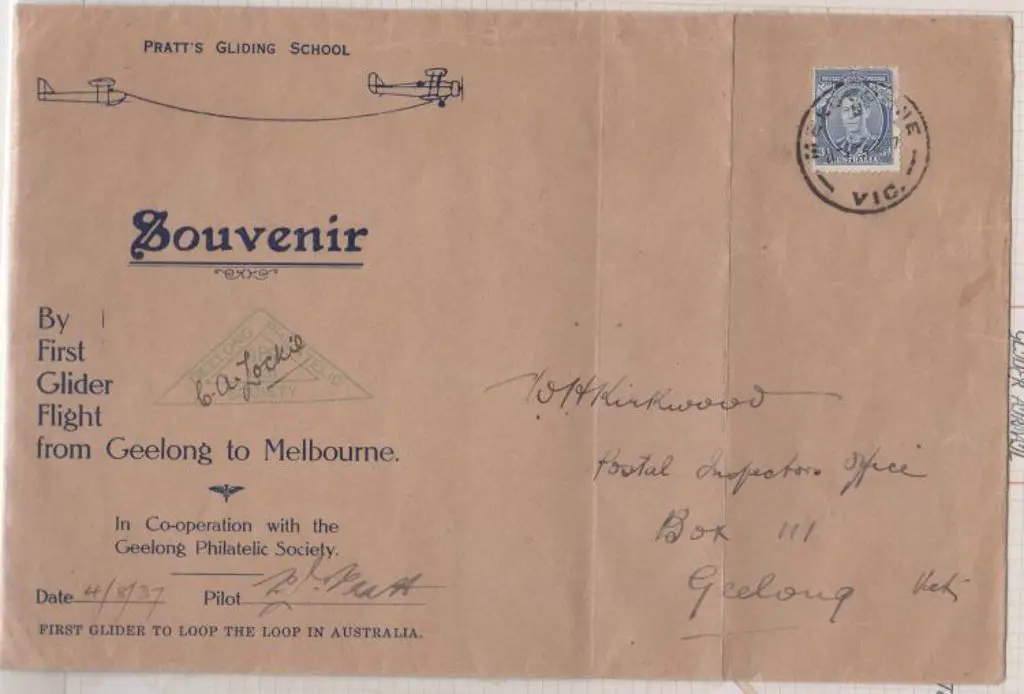 PRATT'S GLIDING SCHOOL
AUSTRALIA
MELBOURNE
VIC.
Souvenir
By
First
Glider
Flight
from Geelong to Melbourne.
GEELONG PHILATELIC SOCIETY
C.A. Lockie
In Co-operation with the
Geelong Philatelic Society.
Date 4/8/37 Pilot Pratt
FIRST GLIDER TO LOOP THE LOOP IN AUSTRALIA.
W H Kirkwood
Postal Inspectors Office
Box 111
Geelong Vict
GLIDER